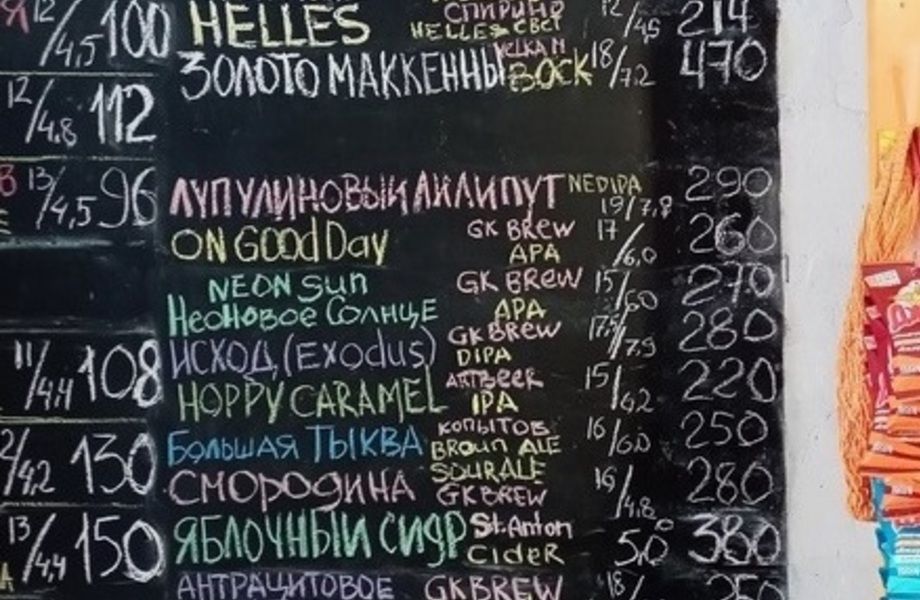 12/4,5 100
12/4.8 112
13/4,5 96
11/4,4 108
2/4,2 130
13/4,4 150
HELLES СПИРИНО HELLES СВЕТ 12/4,5 214
ЗОЛОТО МАККЕННЫ VELKA M BOCK 18/7.2 470
ЛУПУЛИНОВЫЙ ЛИЛИПУТ NEDIPA 19/7,8 290
ON GOOD Day GK BREW APA 17/6,0 260
NEON Sun GK BREW 15/6,0 270
НЕОНОВОЕ СОЛНЦЕ APA
ИСХОД, (Exodus) GK BREW DIPA 17,5/7,9 280
HOPPY CARAMEL ARTBEER IPA 15/6,2 220
БОЛЬШАЯ ТЫКВА КОПЫТОВ BROUN ALE 16/6,0 250
СМОРОДИНА SOUR ALE GK BREW 16/4,8 280
ЯБЛОЧНЫЙ СИДР St. Anton CideR 5,0 380
АНТРАЦИТОВОЕ GK BREW 18/